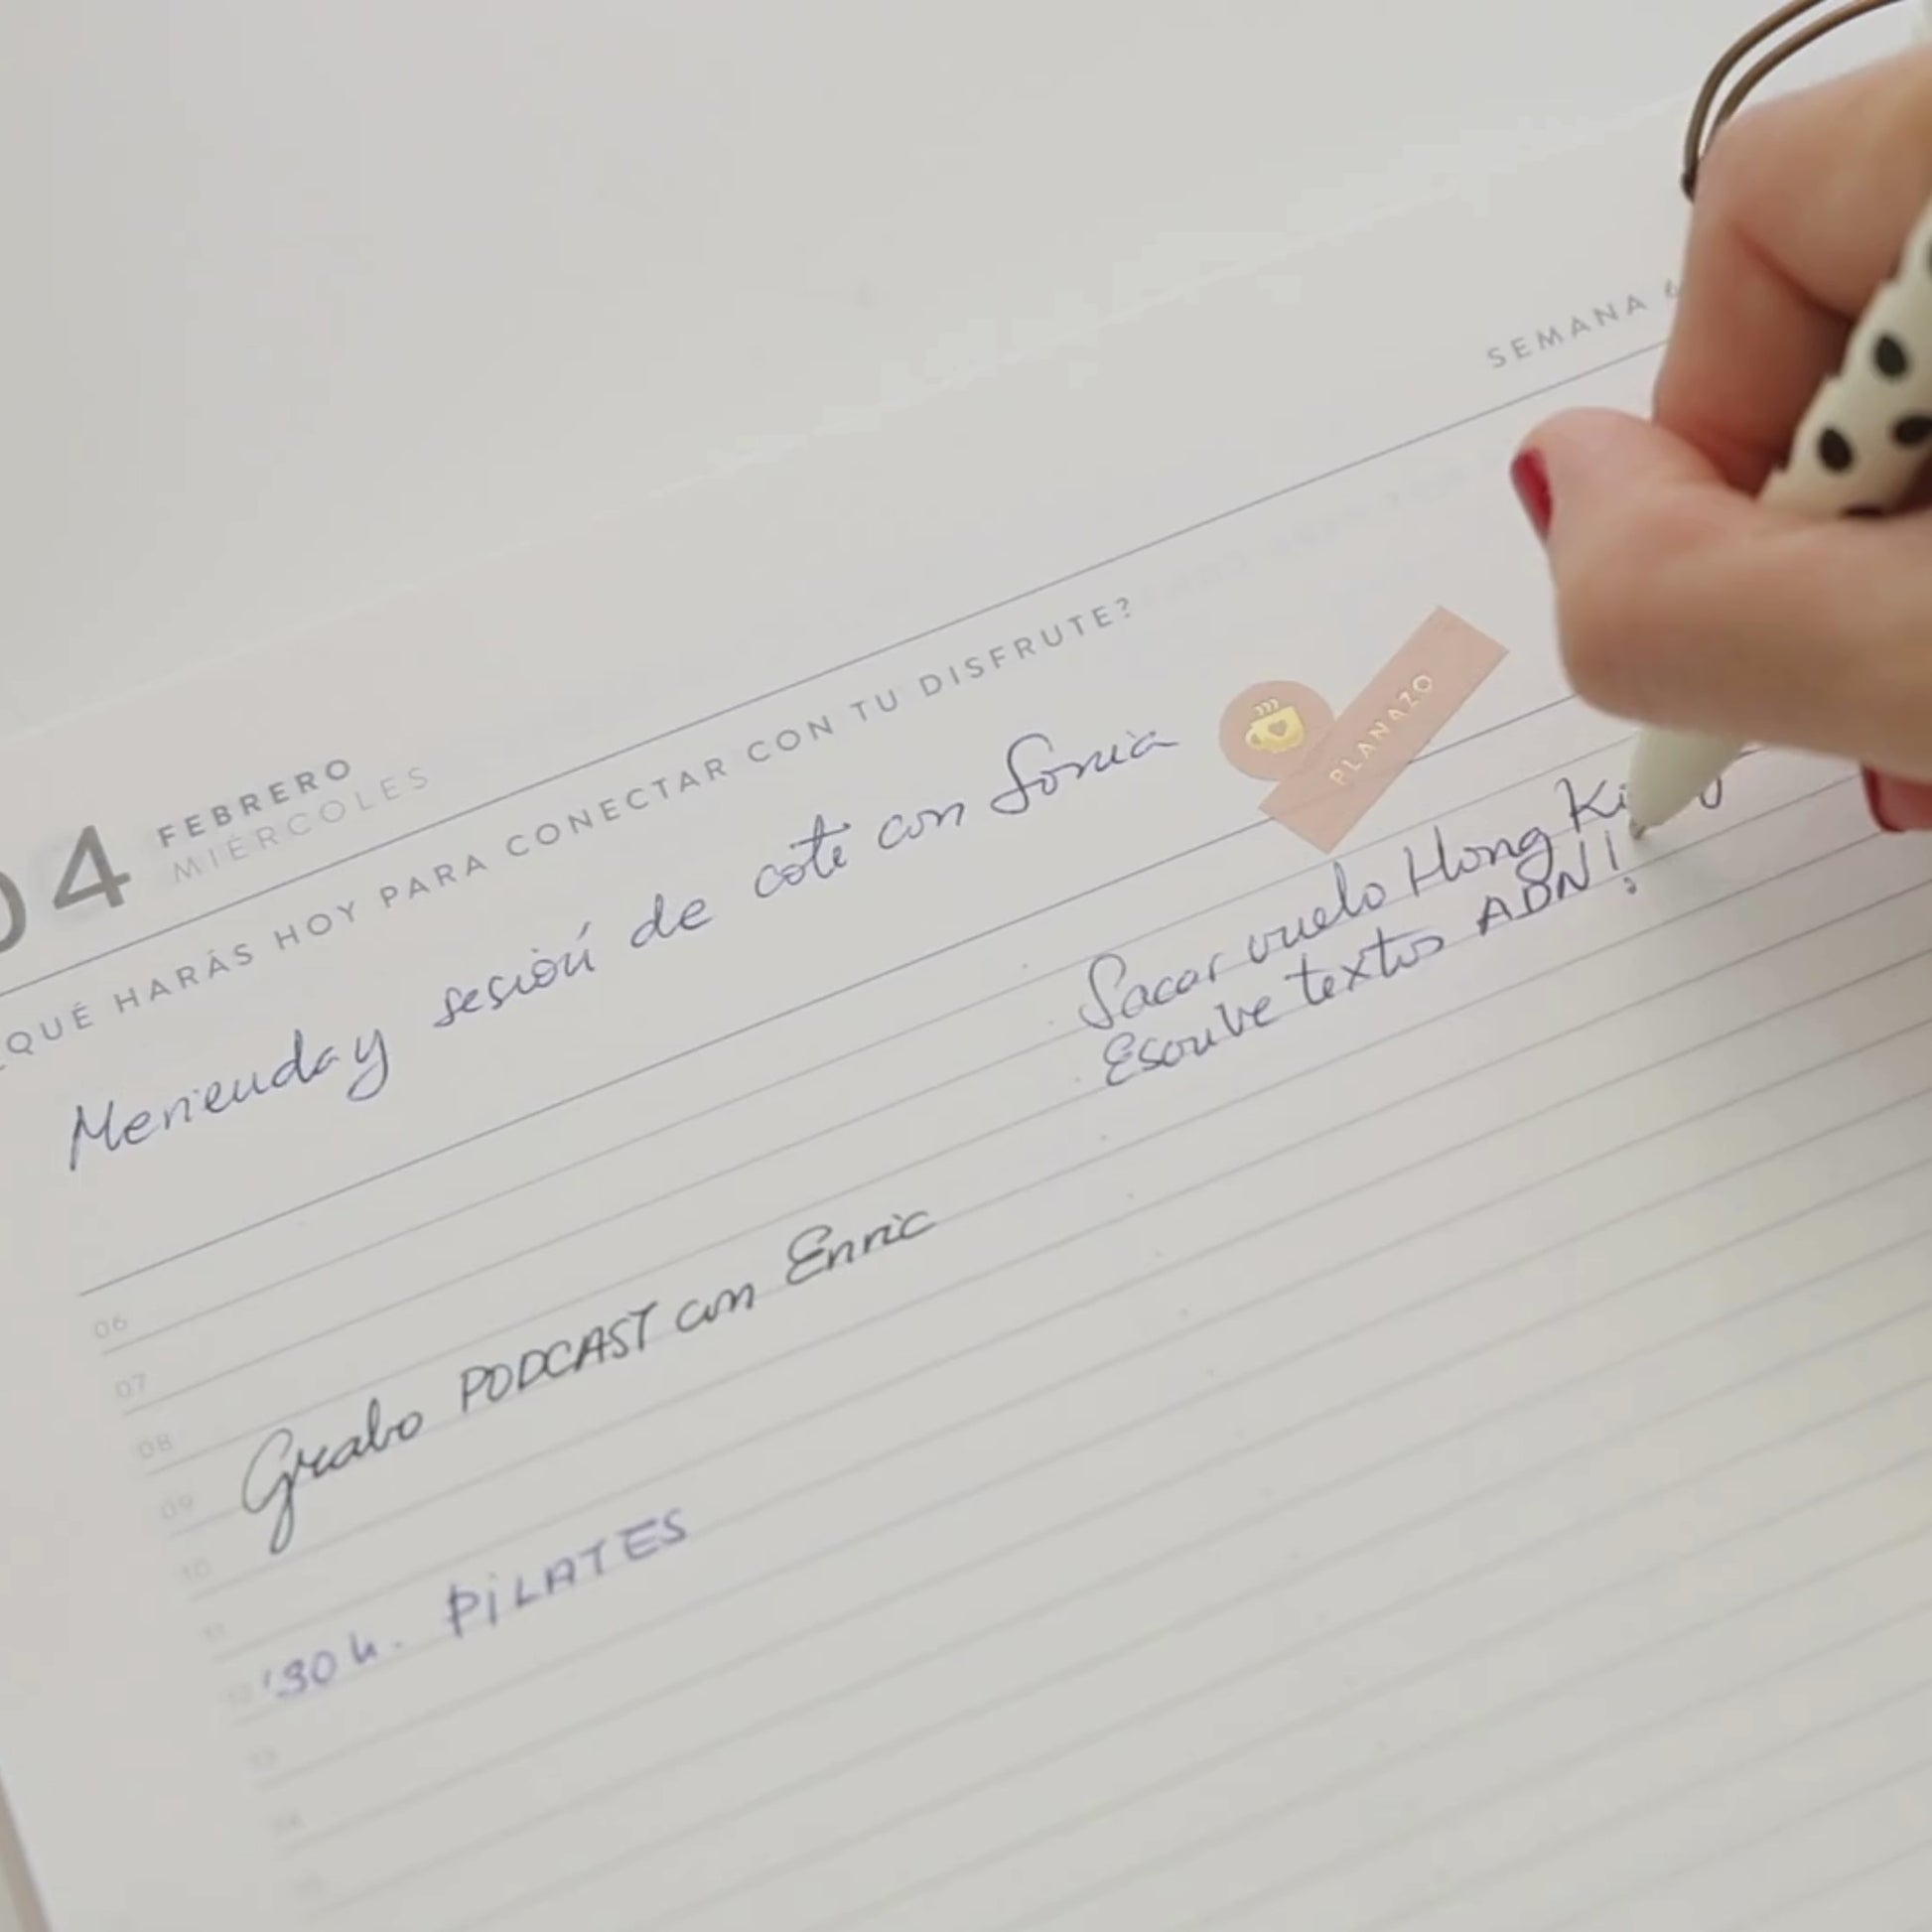 04 FEBRERO
MIÉRCOLES
SEMANA 6
¿QUÉ HARÁS HOY PARA CONECTAR CON TU DISFRUTE?
Merienda y sesión de cote con Sonia
PLANAZO
Sacar vuelo Hong
Escribe textos ADN!
06
07
08
09 Grabo PODCAST con Enric
10
11
12 '30 h. PILATES
13
14